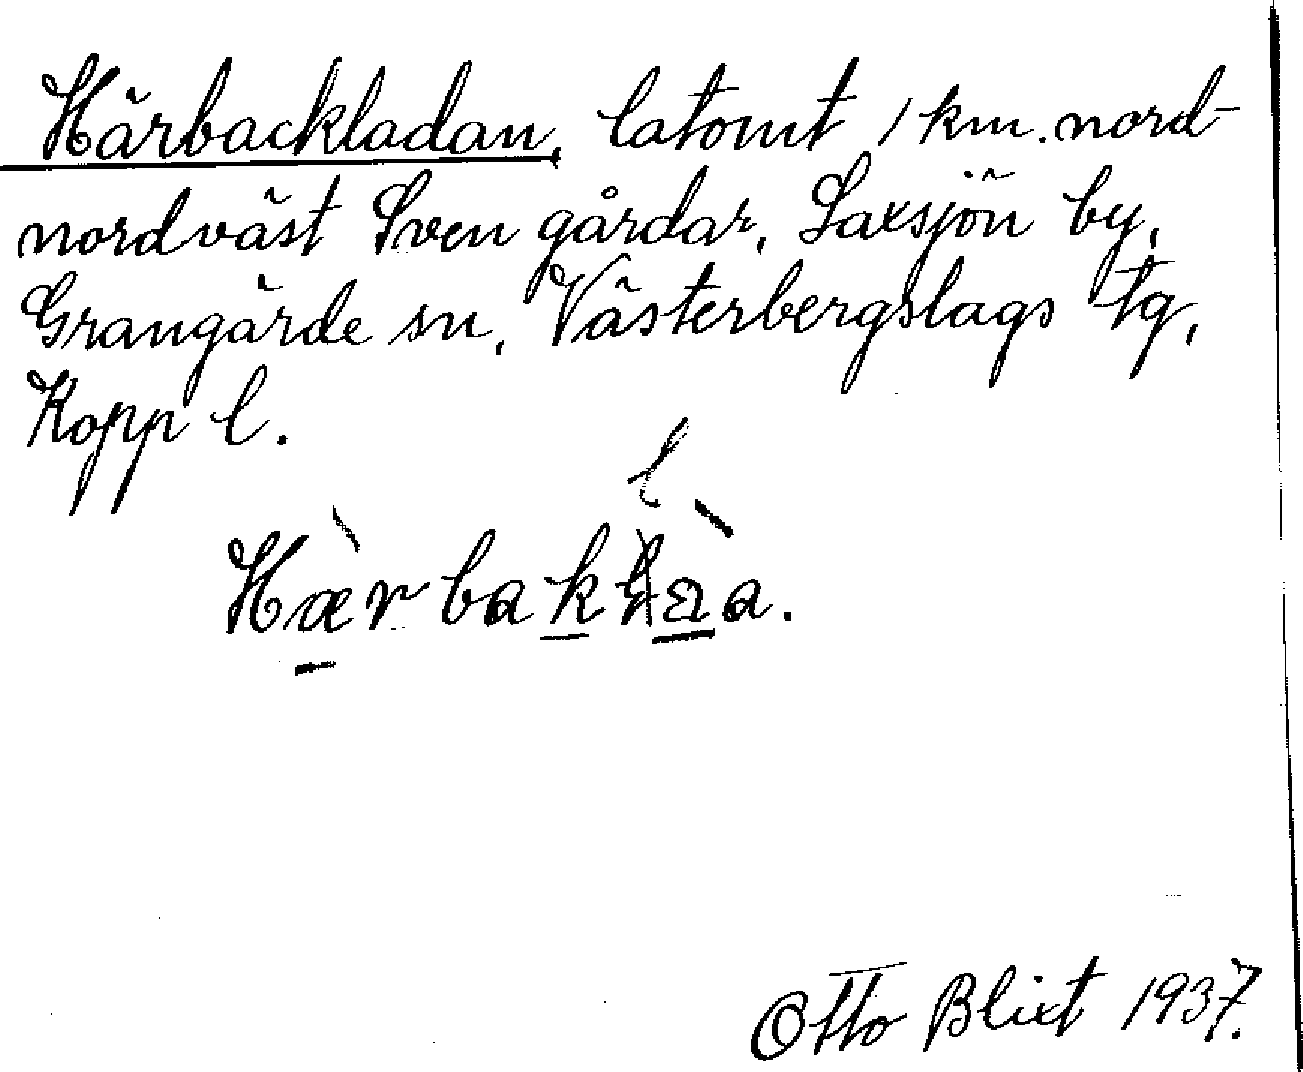 Härbackladan, latomt 1 km. nord-
nordväst Sven gårdar, Saxsjön by,
Grangärde sn, Västerbergslags tg,
Kopp l.
l
Hæ̀rbak
Otto Blixt 1937.